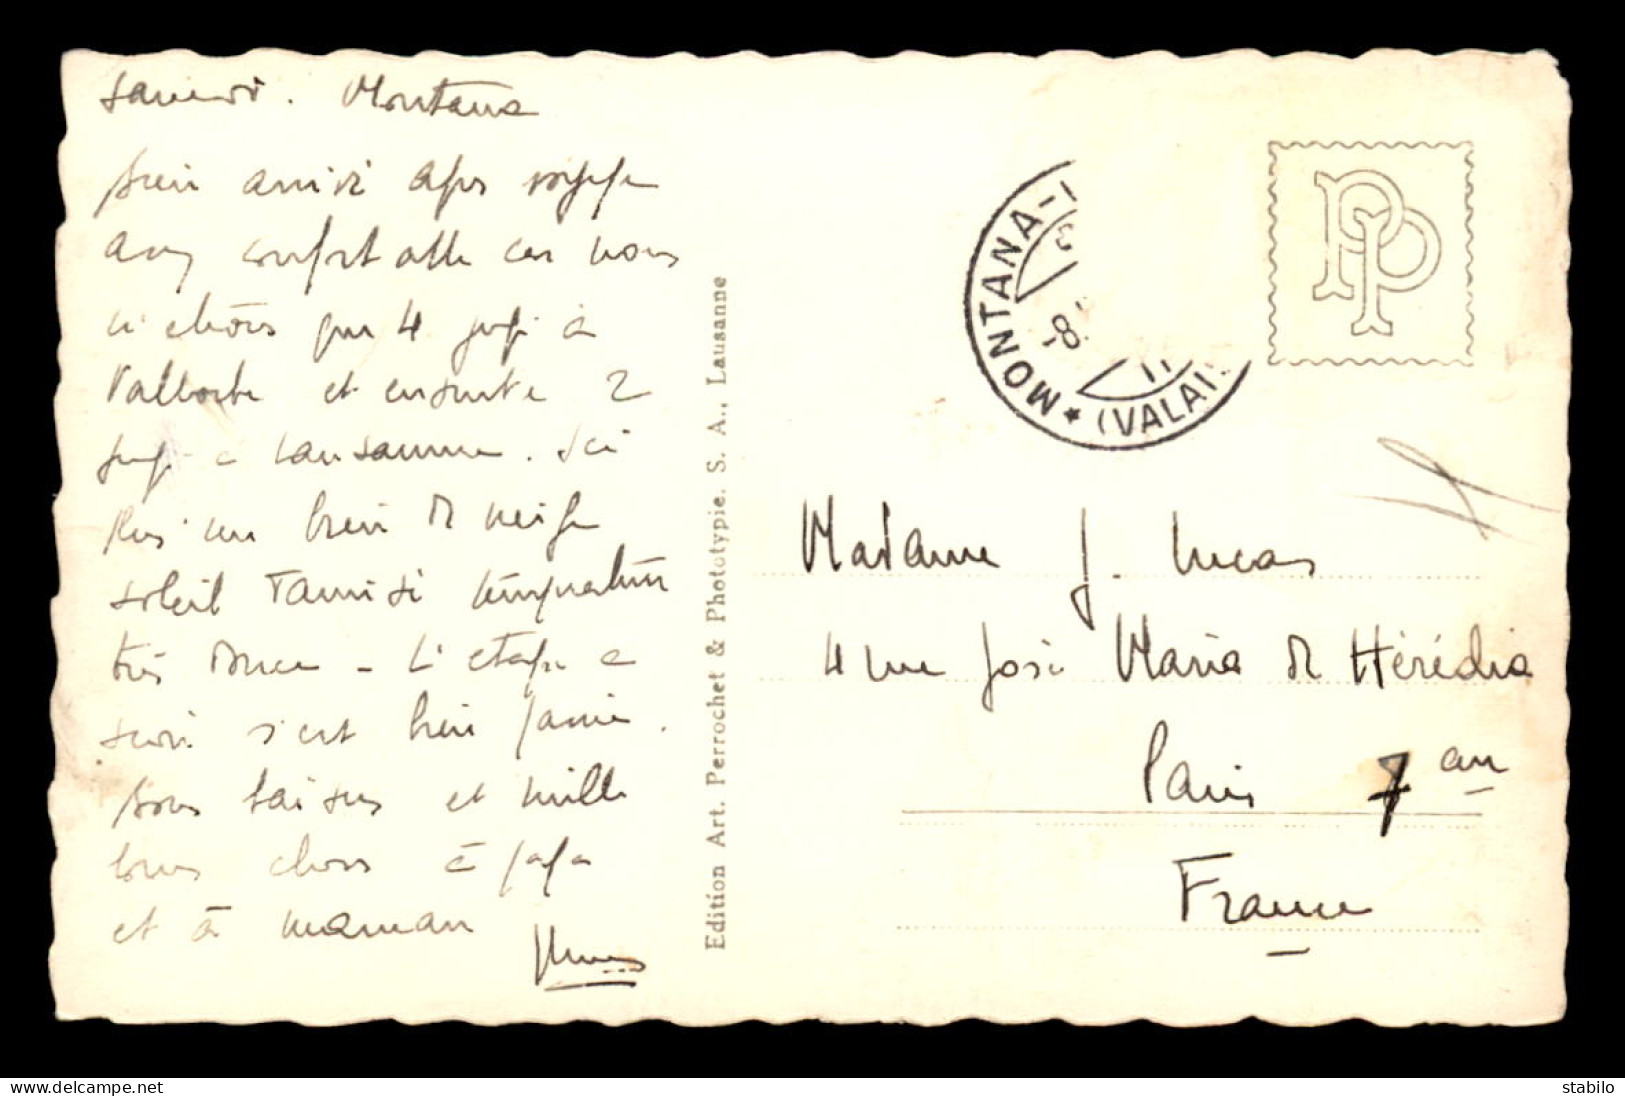 samedi. Montana
bien arrivé après voyage
assez confortable car nous
n'étions que 4 jusqu'à
Vallorbe et ensuite 2
jusqu'à Lausanne. Ici
plus un brin de neige
soleil tamisé température
très douce - L'étape a
ski s'est bien passée.
bons baisers et mille
bonnes choses à papa
et à maman
Edition Art. Perrochet & Phototypie. S. A., Lausanne
MONTANA-
-8.
II
(VALAIS
PPI
Madame J. Lucas
4 rue José Maria de Hérédia
Paris 7 arr
France
delcampe.net
stabilo